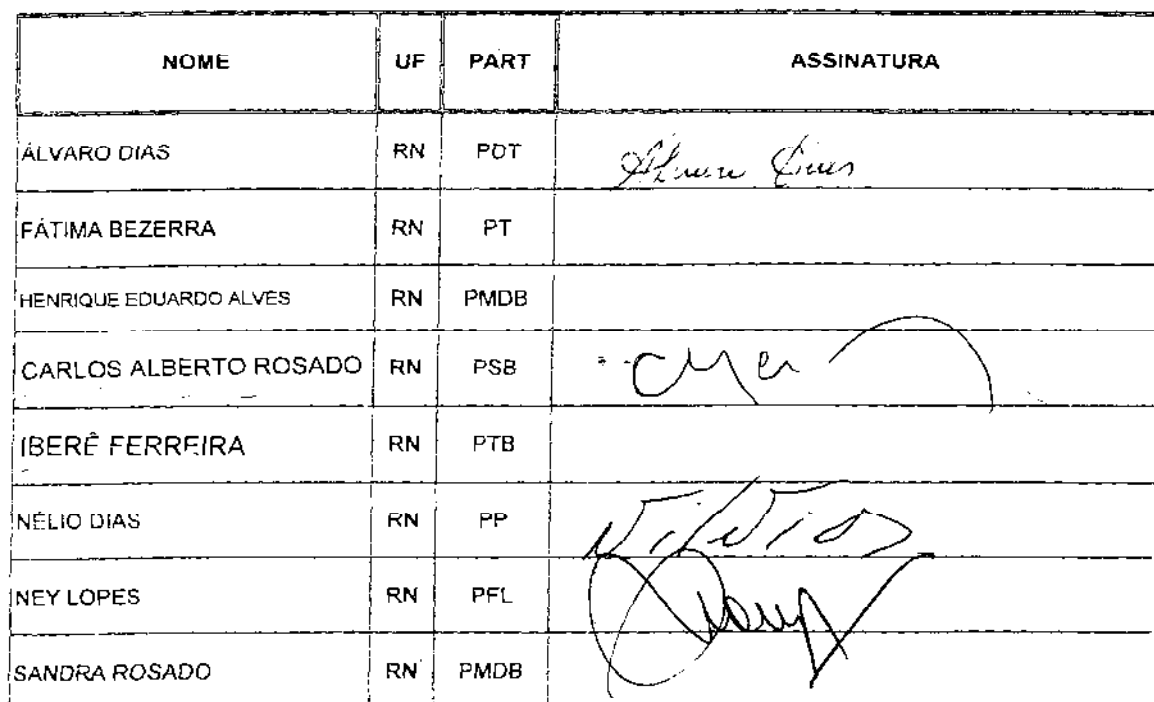 NOME UF PART ASSINATURA
ÁLVARO DIAS RN PDT
FÁTIMA BEZERRA RN PT
HENRIQUE EDUARDO ALVES RN PMDB
CARLOS ALBERTO ROSADO RN PSB
IBERÊ FERREIRA RN PTB
NÉLIO DIAS RN PP
NEY LOPES RN PFL
SANDRA ROSADO RN PMDB